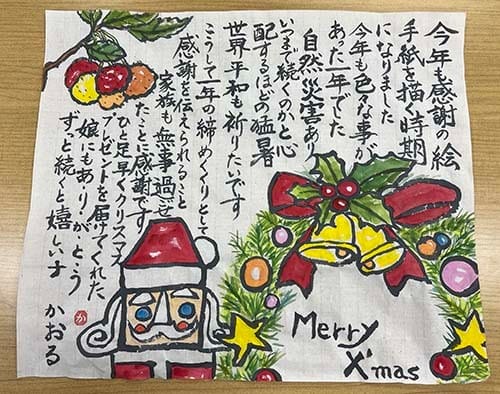 今年も感謝の絵
手紙を描く時期
になりました
今年も色々な事が
あった一年でした
自然災害あり
いつまで続くのかと心
配するほどの猛暑
世界平和も祈りたいです
こうして一年の締めくくりとして
感謝を伝えられること
家族も無事過ごせ
たことに感謝です
ひと足早くクリスマス
プレゼントを届けてくれた
娘にもあり・が・と・う
ずっと続くと嬉しいす
かおる
か
Merry
X'mas